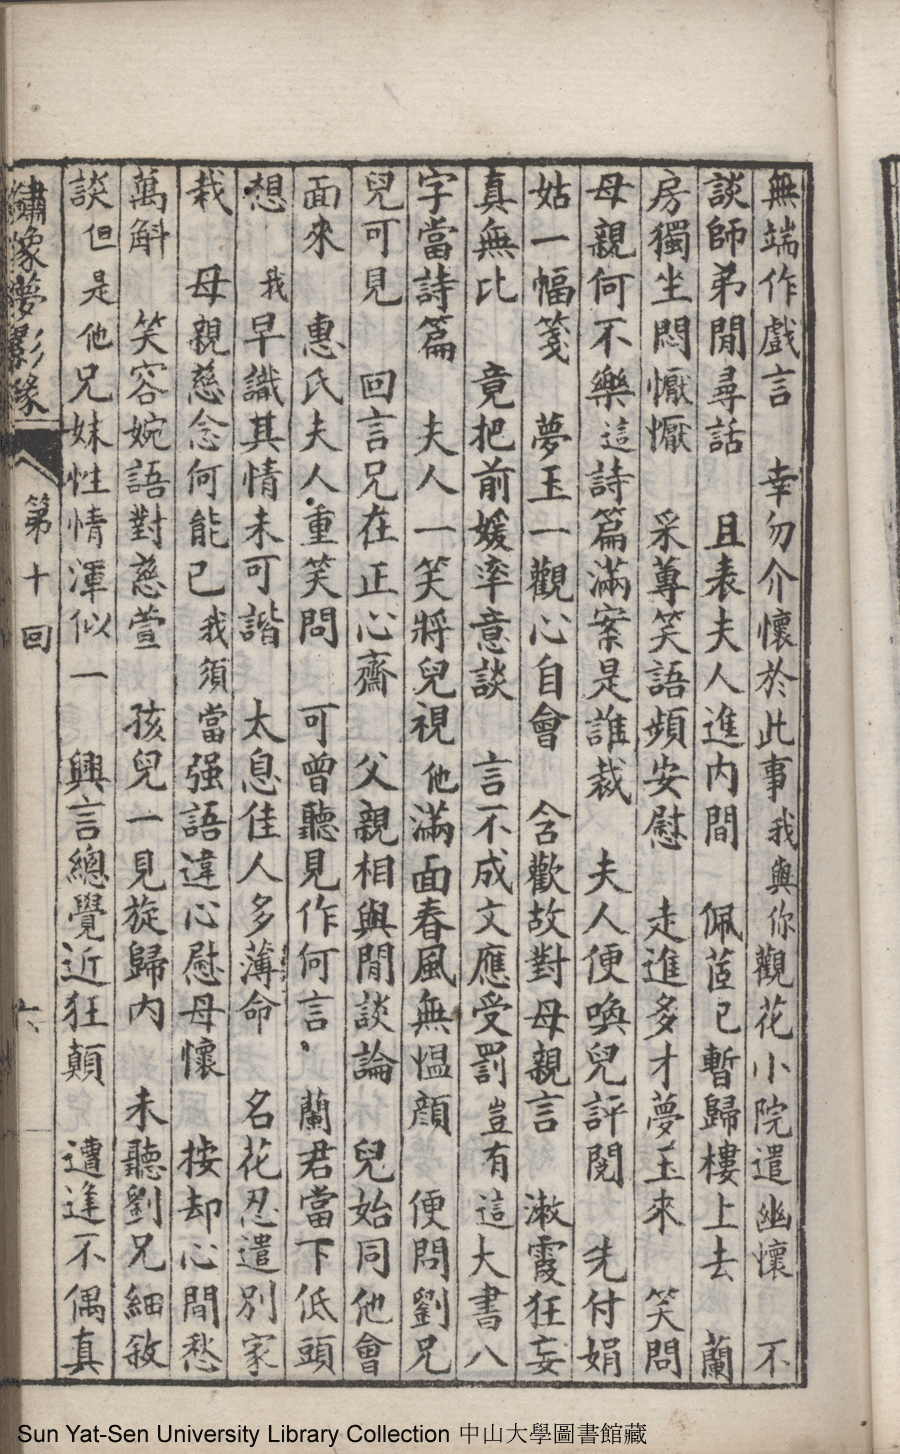 無端作戲言　幸勿介懷於此事我與你觀花小院遣幽懷　不
談師弟閒尋話　且表夫人進內間　佩茝已暫歸樓上去　蘭
房獨坐悶懨懨　采蓴笑語頻安慰　走進多才夢玉來　笑問
母親何不樂這詩篇滿案是誰裁　夫人便喚兒評閱　先付娟
姑一幅箋　夢玉一觀心自會　含歡故對母親言　漱霞狂妄
真無比　竟把前媛率意談　言不成文應受罰豈有這大書八
字當詩篇　夫人一笑將兒視他滿面春風無慍顏　便問劉兄
兒可見　回言兄在正心齋　父親相與閒談論　兒始同他會
面來　惠氏夫人重笑問　可曾聽見作何言　蘭君當下低頭
想　我早識其情未可諧　太息佳人多薄命　名花忍遣別家
栽　母親慈念何能已我須當强語違心慰母懷　按却心間愁
萬斛　笑容婉語對慈萱　孩兒一見旋歸內　未聽劉兄細敘
談但是他兄妹性情渾似一　興言總覺近狂顛　遭逢不偶真
繡像夢影緣　第十回　六
Sun Yat-Sen University Library Collection 中山大學圖書館藏